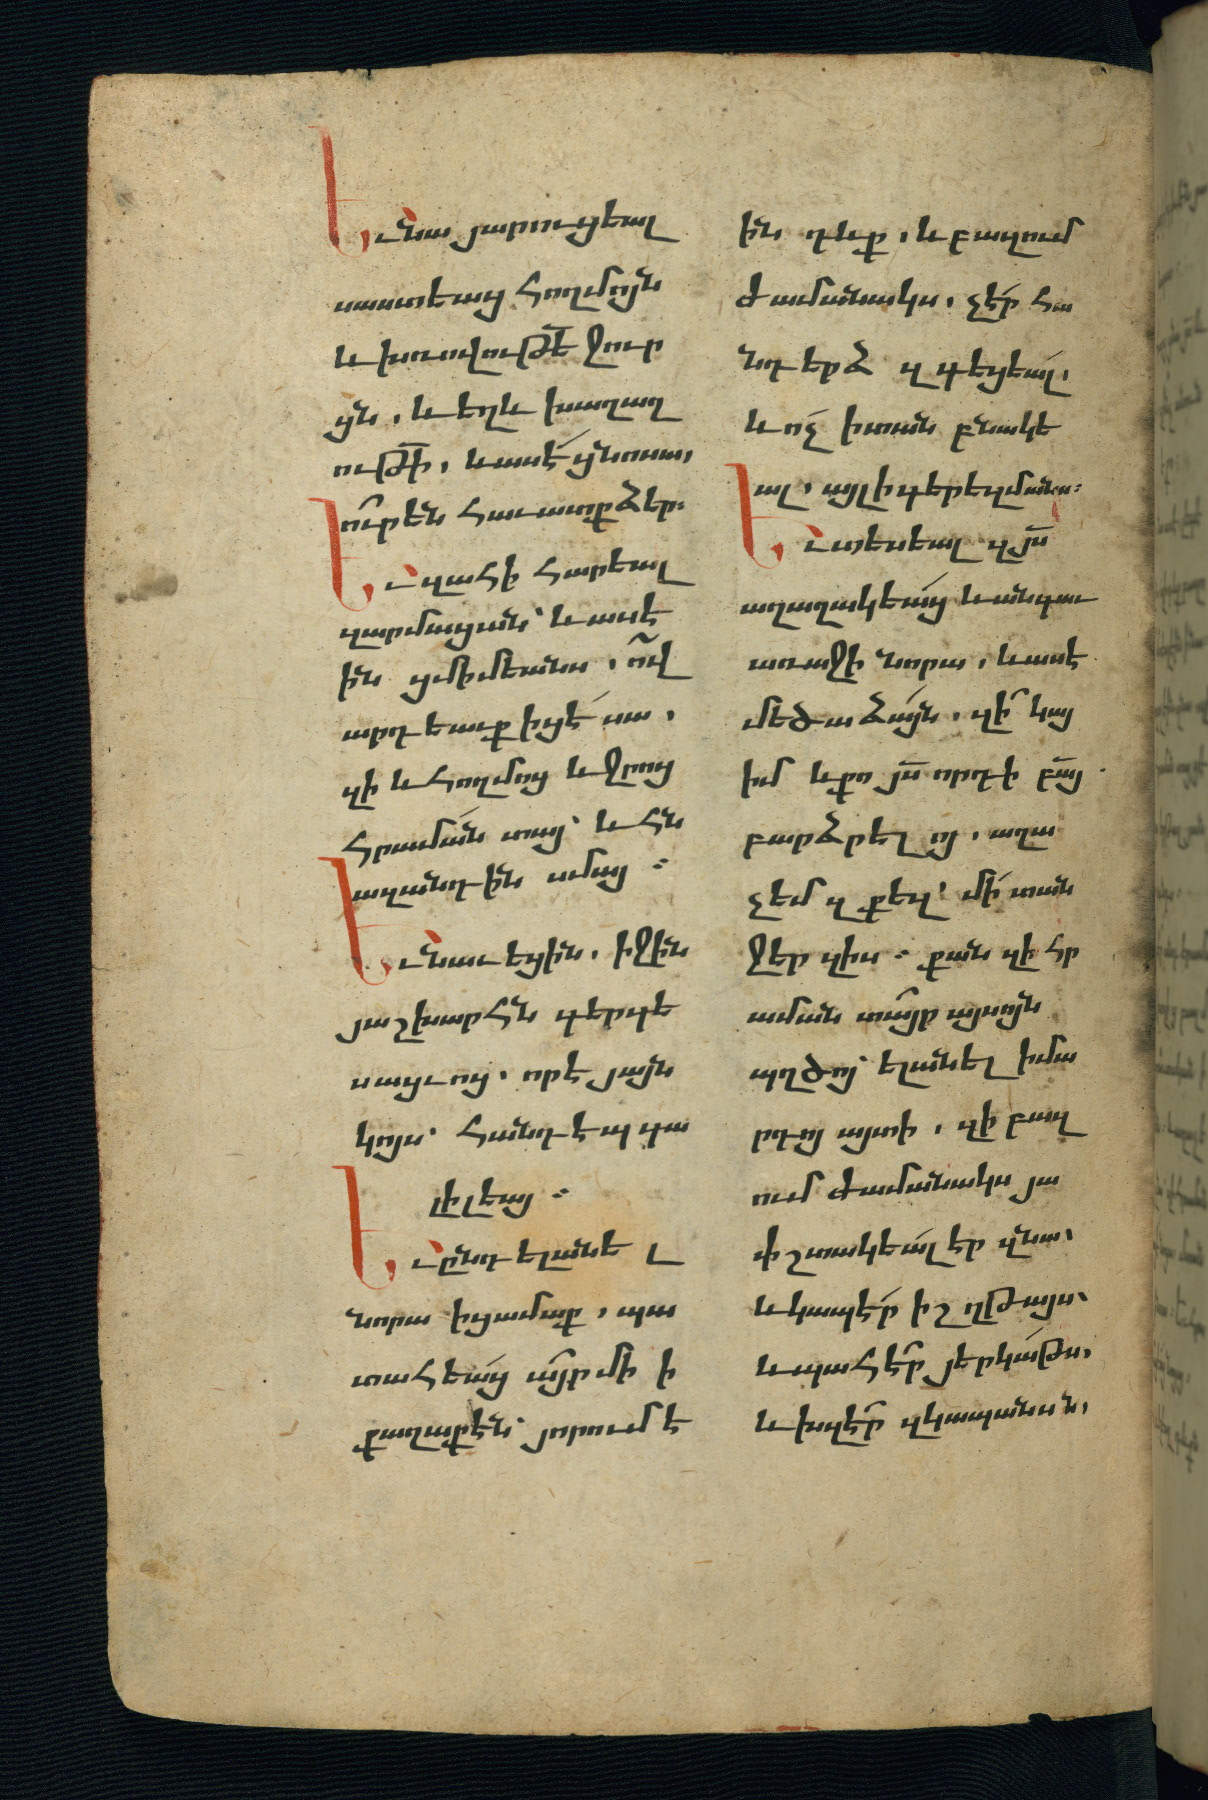 Եւ նա յարուցեալ
սաստեաց հողմոյն
և խռովութե̅ ջուր
ցն . և եղև խաղաղ
ութի̅ . և ասէ ցնոսա,
ո՞ւր են հաւատք ձեր։
Եւ զահի հարեալ
զարմացան՝ և ասէ
ին ցմիմեանս , ո՞վ
արդեաւք իցէ սա ,
զի և հողմոց և ջրոց
հրաման տայ՝ և հն
ազանդին սմայ ։
Եւ նաւեցին . իջին
յաշխարհն գերգե
սացւոց . որ է յայն
կոյս՝ հանդէպ գա
լիլեայ ։
Եւ ընդ ելանել
նորա ի ցամաք , պա
տահեաց այր մի ի
քաղաքէն՝ յորում է
ին դևք , և բազում
ժամանակս . չէր հա
նդերձ զգեցեալ,
և ոչ ի տան բնակե
ալ , այլ ի գերեզմանս։
Եւ տեսեալ զյս̅
աղաղակեաց և անգաւ
առաջի նորա , և ասէ
մեծաձայն . զի՞ կայ
իմ և քո յս̅ որդի ա̅յ
բարձրելոյ , աղա
չեմ զքեզ՝ մի տան
ջեր զիս ։ քանզի հր
աման տայր այսոյն
պղծոյ՝ ելանել ի մա
րդոյ այտի , զի բազ
ում ժամանակս յա
փշտակեալ էր զնա,
և կապէր ի շղթայս,
և պահէր յերկաթս,
և խզէր զկապանսն,